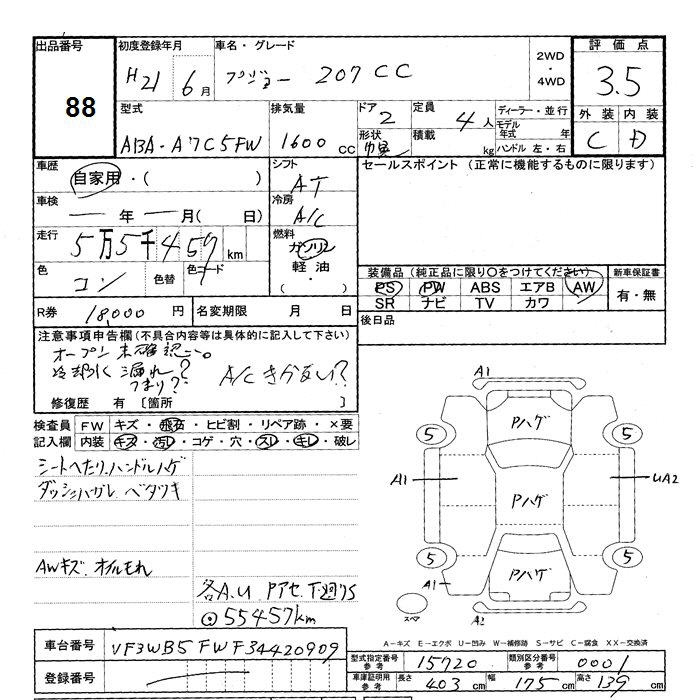 出品番号 初度登録年月 車名・グレード 2WD・4WD 評価点
88 H21 6月 プジョー 207CC 3.5
型式 排気量 ドア 定員 ディーラー・並行 外装 内装
ABA-A7C5FW 1600CC 2 4人 モデル年式 年 C D
形状 積載 kg ハンドル 左・右
車歴 シフト セールスポイント (正常に機能するものに限ります)
自家用・( ) AT
車検 冷房
年 月( 日) A/C
走行 燃料
5万5千457km ガソリン
軽油・( )
色 色替 色コード 装備品(純正品に限り○をつけてください) 新車保証書
コン PS PW ABS エアB AW 有・無
SR ナビ TV カワ
R券 18,000円 名変期限 月 日 後日品
注意事項申告欄(不具合内容等は具体的に記入して下さい)
オープン未確認
冷却水漏れ?
つまり? A/Cきかない?
修復歴 有 [箇所 ]
検査員 FW キズ・飛石・ヒビ割・リペア跡・×要
記入欄 内装 キズ・汚レ・コゲ・穴・スレ・キレ・破レ
シートへたり、ハンドルハゲ
ダッシュハガレ ベタツキ
AWキズ、オイルもれ
各A.U Pアセ 下廻りS
55457km
A1
Pハゲ
5 5
A1 Pハゲ UA2
5 5
Pハゲ
A1
スペア A2
A-キズ E-エクボ U-凹み W-補修跡 S-サビ C-腐食 XX-交換済
車台番号 VF3WB5FWF34420909
型式指定番号 参考 15720 類別区分番号 参考 0001
登録番号
車庫証明用 参考 長さ 403cm 幅 175cm 高さ 139cm